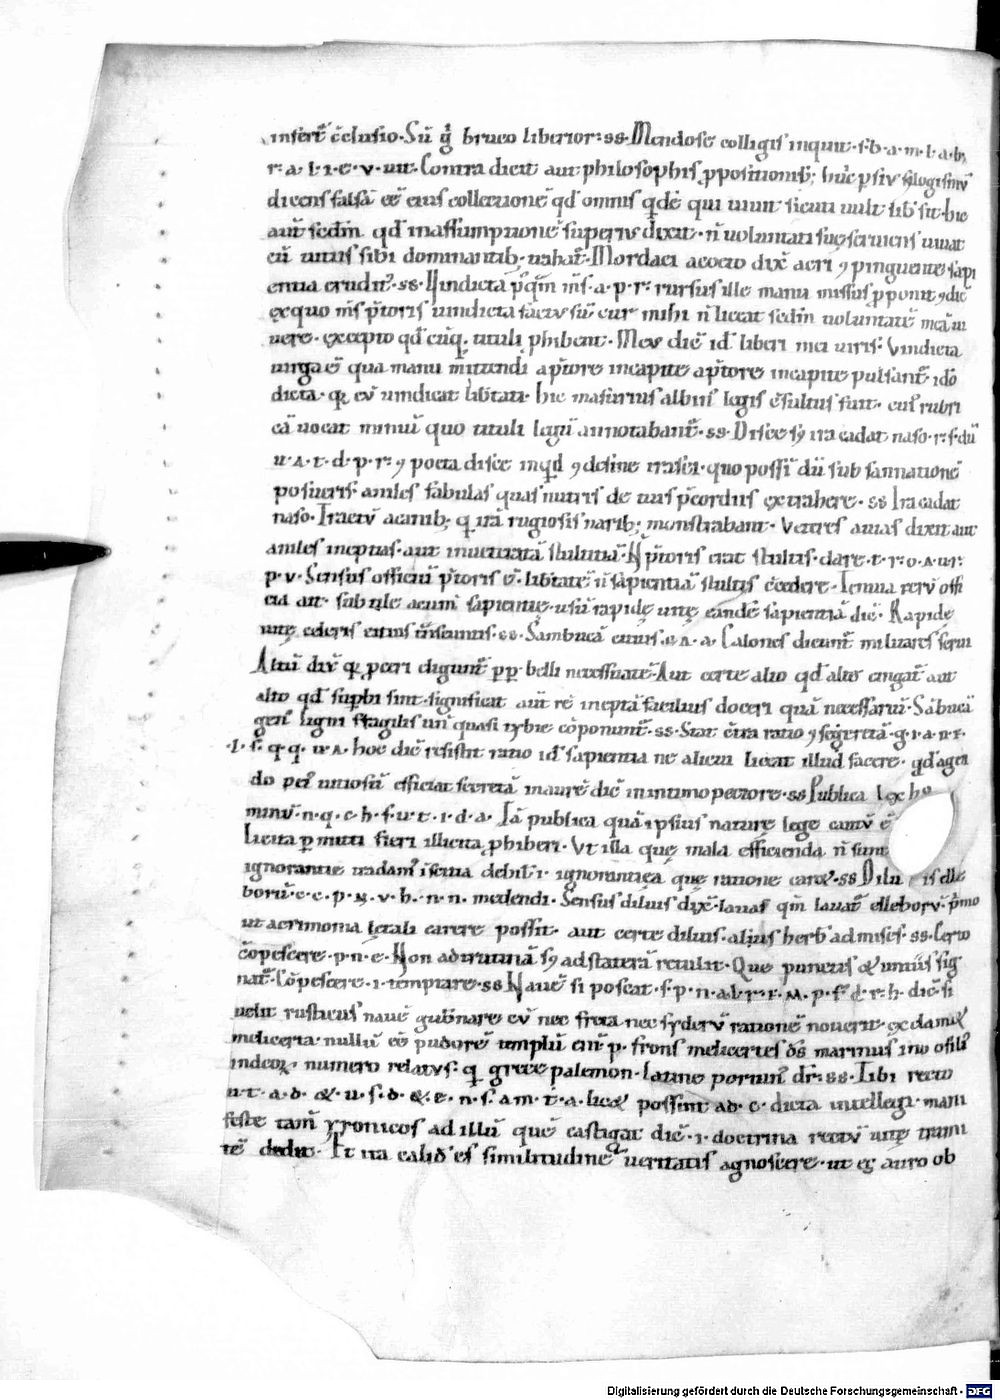 infert̄ c̄clusio. Sū g̊ bruto liberior: ss. Mendose colligis inquit. s. b. a. m. l. a. b.
r. a. l. i. e. v. uit. Contradicit aut philosophis p̱positionib; huic p siu syllogismū
dicens falsā eē eius collectionē qđ omnis qdē qui uiuit sicuti uult lib̄ sit. hic
aut̄ sedm̄ qđ in assumptionē superiꝰ dixit. n̄ uoluntati suę seruiens uiuat
cū uitiis sibi dominantib; trahat̄. Mordaci aceto dix̄ acri ⁊ pingente sapi
entia erudit̄. ss. Uindicta pꝰqm̄ m̄s. a. p. r: rursus ille manu missus p̱ponit ⁊ dic̄
ex quo m̄s p̄toris uindicta factus sū cur mihi n̄ liceat sedm̄ uoluntatē meā ui
uere. excepto qđ cūq, tituli phibent. Meꝰ dic̄ id liberi mei iuris. Vindicta
uirga ē qua manu mittendi a p̄tore in capite a p̄tore in capite pulsant̄ idō
dicta. q eū uindicat lib̄tati. hic masurius albius legis c̄sultus fuit. cuiꝰ rubri
cā uocat minū quo tituli legū annotabant̄. ss. Disce sȝ ira cadat naso. r. s. dū
u. A. t. d. p. r: ⁊ poeta disce inqđ ⁊ desine irasci. quo possī dū sub sannationē
posueris. aniles fabulas quas nutris de tuis p̄cordiis extrahere. ss Ira cadat
naso. Iractū acanib; q irā rugosis narib; monstrabant. Veteres auias dixit aut
aniles ineptias. aut inueteratā stulticiā. N p̄toris erat stultis. dare. t. r. o. A. ur:
p. v. Sensus officiū p̄toris ē. lib̄tatē n̄ sapientiā stultis c̄cedere. Tenuia rerū offi
cia ait. subtile acum̄ sapientię. usū rapidę uitę eandē sapientiā dic̄. Rapidę
uitę celeris citius t̄nseuntis. ss. Sambucā citius. c A. a. Calones dicunt̄ militares serui
Altū dix̄ q p̱ceri eligunt̄ pp belli necessitatē. Aut certe alto qđ alte cingat̄ aut
alto qđ supbi sint. significat aut rē ineptā facilius doceri quā necessariā. Sābucā
gen̄ ligni fragilis un̄ quasi tybie cōponunt̄. ss. Stat c̄tra ratio ⁊ segretā. g. i. A. n t.
.i. s. q. q. u A. hoc dic̄ resistit ratio id̄ sapientia ne alicui liceat illud facere. qđ agen
do pet̄ uitiosū efficiat secretā in aurē dic̄ in intimo pectore. ss Publica lex ho
minū. n. q. c. h. f. u t. i. d. a. Tā publica quā ipsius naturę lege cautū ē
licita p̱mitti fieri illicita p̱hiberi. Vt illa quę mala efficienda n̄ sunt
ignorantie
boru. c. c. p. N. v. h. n. n. medendi. Sensus diluis dix̄. lauas qm̄ lauat̄ elleborū. p̄mo
ut acrimonia letali carere possit. aut certe diluis. aliuis herb̄ admises. ss. Certo
cōpescere. p. n. e. Non ad trutinā sȝ ad staterā retulit. Que punctis & untiis sig
nat̄. Cōpescere. i. temptare. ss Nauē si poscat. s. p. n. a. l. r. r. r. M. p. f. d. r. h. dic̄ si
uelit rusticus nauē gub̄nare cū nec freta nec syderū rationē nouerit. exclamet
melicerta. nullū eē pudorē templū enī p. frons melicertes đs marinus ino ofilī
in deoꝝ numero relatus: q grece palemon. latine portun̄ dr̄. ss. Tibi recto
u. t. a. d. & u. s. d. & e. n. s. a m. t. a. lic& possint ad. c. dicta intellegi. mani
feste tam̄ yronicos ad illū quē castigat dic̄. i. doctrina rectū uitę trami
tē dedit. Et ita calid̄ es similitudinē ueritatis agnoscere. ut eꝫ auro ob
Digitalisierung gefördert durch die Deutsche Forschungsgemeinschaft - DFG